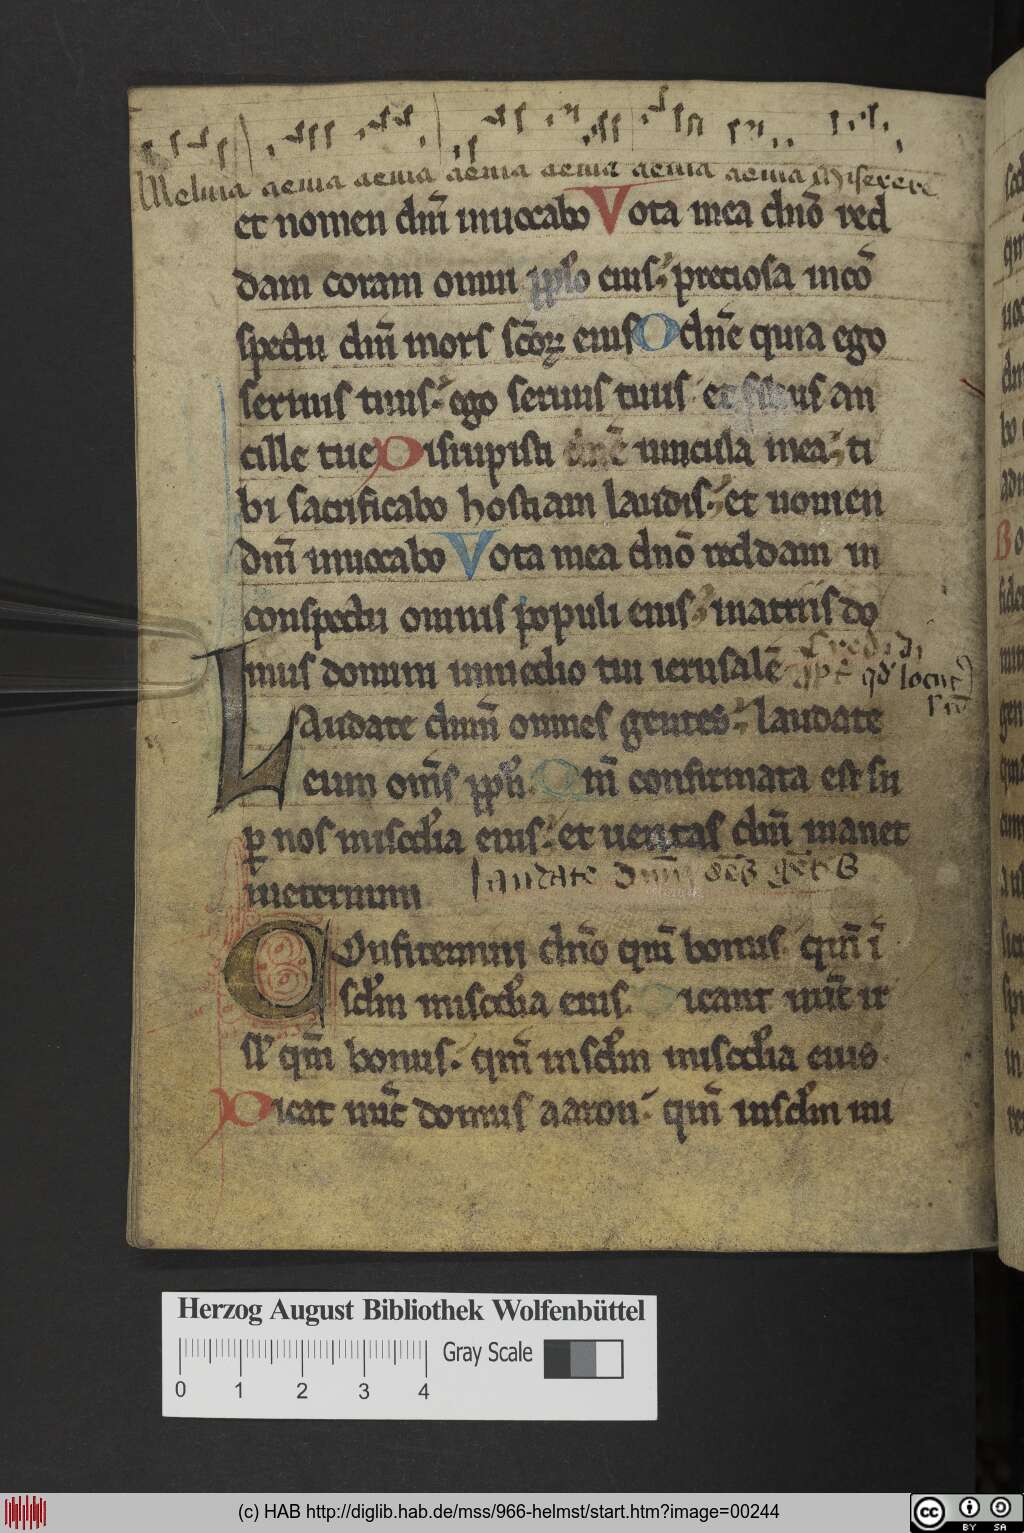 Alleluia aeuia aeuia aeuia aeuia aeuia aeuia Miserere
et nomen dnī inuocabo Vota mea dnō red
dam coram omni ppl̄o eius: preciosa incō
spectu dnī mors scōꝝ eius O dnē quia ego
seruus tuus: ego seruus tuus et filius an
cille tue Disrupisti dnē uincula mea: ti
bi sacrificabo hostiam laudis: et nomen
dnī inuocabo Vota mea dnō reddam in
conspectu omnis populi eius: inatriis do
mus domini inmedio tui ierusalē
Credidi
ꝓpt̄ qđ locut᷒
sū
Laudate dnm̄ omnes gentes: laudate
eum om̄s ppl̄i. Qm̄ confirmata est su
ꝑ nos miscdīa eius: et ueritas dnī manet
ineternum
laudate dnm̄ oēs gētes
Confitemini dnō qm̄ bonus. qm̄ ī
scl̄m miscdīa eius. Dicant nūc it
sr̄l qm̄ bonus. qm̄ inscl̄m miscdīa eius
Dicat nūc domus aaron: qm̄ inscl̄m mi
Herzog August Bibliothek Wolfenbüttel
0 1 2 3 4 Gray Scale
(c) HAB http://diglib.hab.de/mss/966-helmst/start.htm?image=00244
CC BY SA